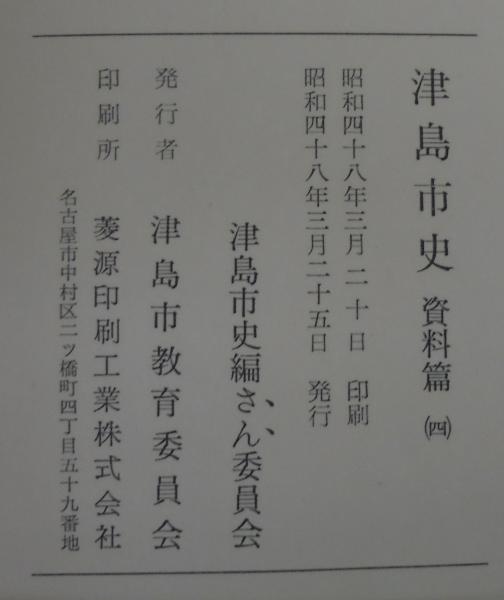 津島市史 資料篇 ㈣
昭和四十八年三月 二十日 印刷
昭和四十八年三月二十五日 発行
津島市史編さん委員会
発行者 津島市教育委員会
印刷所 菱源印刷工業株式会社
名古屋市中村区二ッ橋町四丁目五十九番地